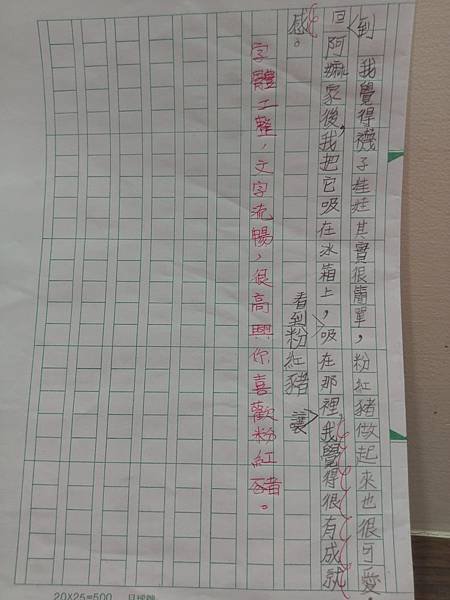 我覺得襪子娃娃其實很簡單，粉紅豬做起來也很可愛。
到
回阿嫲家後，我把它吸在冰箱上，吸在那裡，我覺得很有成就
看到粉紅豬 讓
感。
字體工整，文字流暢，很高興你喜歡粉紅豬。
20X25=500